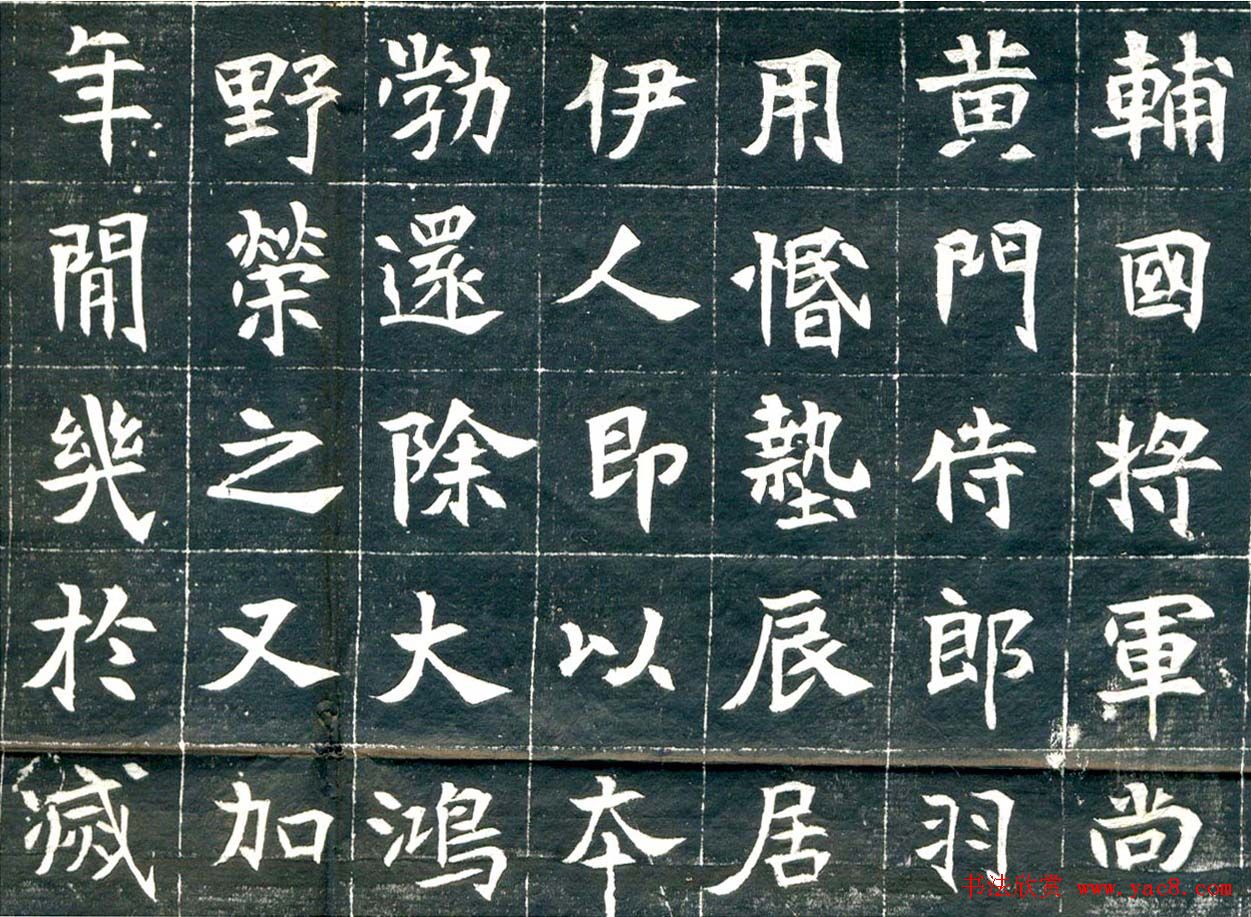 輔國將軍尚
黄門侍郎羽
用惽墊辰居
伊人即以本
勃還除大鴻
野榮之又加
年閒幾於滅
书法欣赏 www.yac8.com